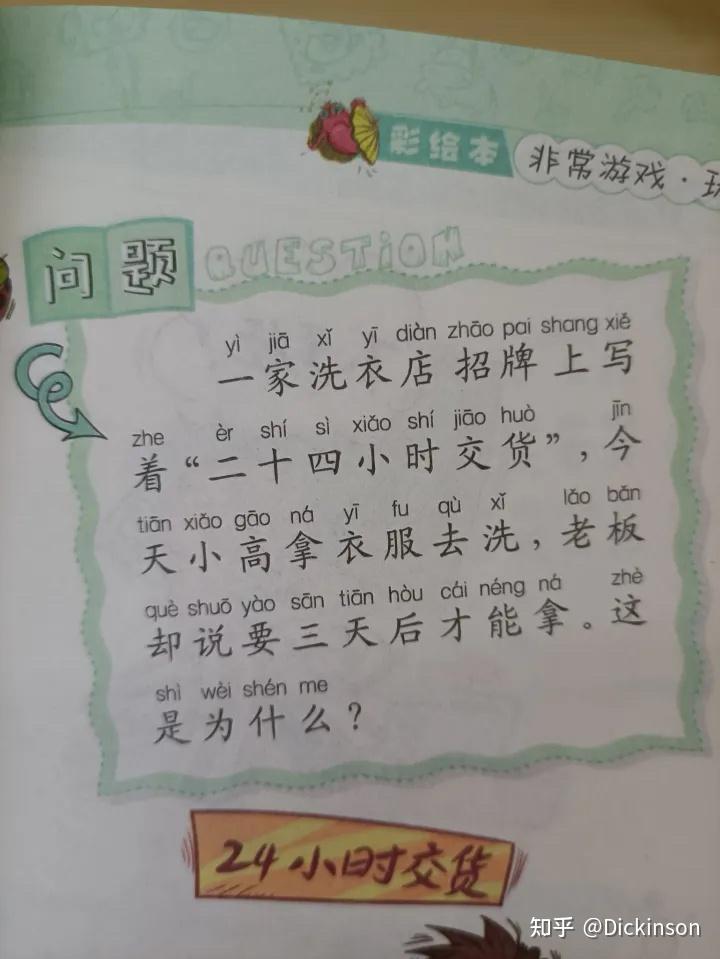 彩绘本 非常游戏·
问题 QUESTION
yì jiā xǐ yī diàn zhāo pai shang xiě
一家洗衣店招牌上写
zhe èr shí sì xiǎo shí jiāo huò jīn
着“二十四小时交货”,今
tiān xiǎo gāo ná yī fu qù xǐ lǎo bǎn
天小高拿衣服去洗,老板
què shuō yào sān tiān hòu cái néng ná zhè
却说要三天后才能拿。这
shì wèi shén me
是为什么?
24小时交货
知乎 @Dickinson